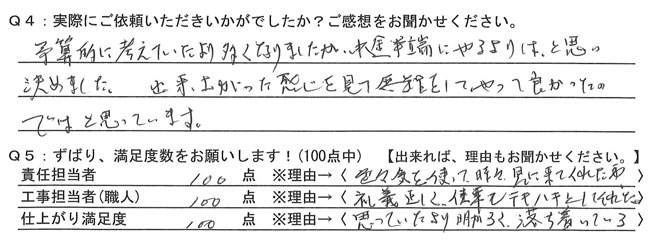 Q4：実際にご依頼いただきいかがでしたか？ご感想をお聞かせください。
予算的に考えていたより多くなりましたが、中途半端にやるよりは、と思い
決めました。 出来上がった感じを見て無理をしてやって良かったの
ではと思っています。
Q5：ずばり、満足度数をお願いします！(100点中) 【出来れば、理由もお聞かせください。】
責任担当者 100 点 ※理由→〈 気を使って時々見に来てくれた
工事担当者(職人) 100 点 ※理由→〈 礼義正しく、仕事もテキパキとしてくれた。
仕上がり満足度 100 点 ※理由→〈 思っていたより明かるく、落ち着いている 〉